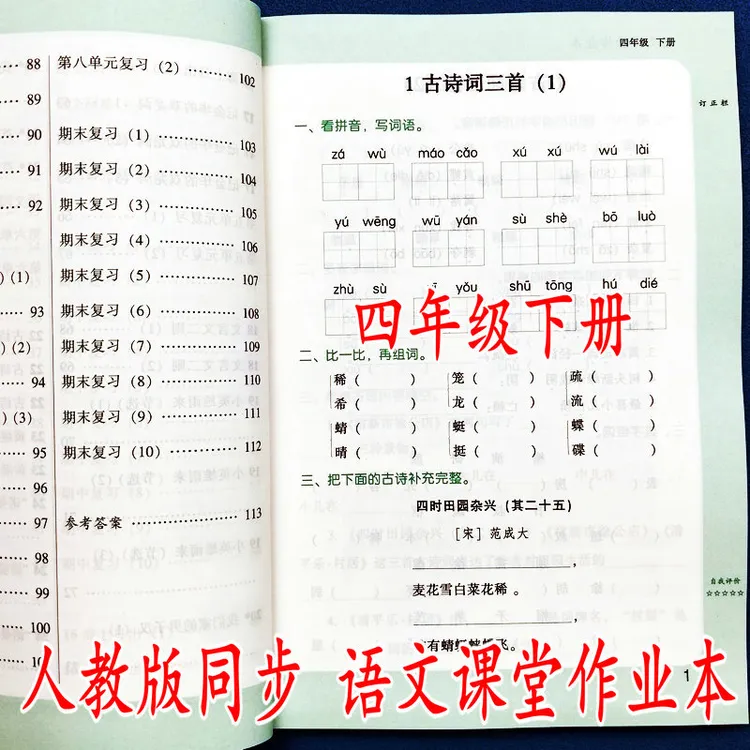 88 第八单元复习（2）………… 102
89
90 期末复习（1）………… 103
91 期末复习（2）………… 104
92 期末复习（3）………… 105
期末复习（4）………… 106
）（1） 期末复习（5）………… 107
93 期末复习（6）………… 108
）（2） 期末复习（7）………… 109
94 期末复习（8）………… 110
）（3） 期末复习（9）………… 111
95 期末复习（10）………… 112
96
97 参考答案 ………… 113
98
99
四年级 下册
订正栏
1 古诗词三首（1）
一、看拼音，写词语。
zá wù máo cǎo xú xú wú lài
yú wēng wū yán sù shè bō luò
zhù sù yǒu shū tōng hú dié
四年级下册
二、比一比，再组词。
稀（ ） 笼（ ） 疏（ ）
希（ ） 龙（ ） 流（ ）
蜻（ ） 蜓（ ） 蝶（ ）
晴（ ） 挺（ ） 碟（ ）
三、把下面的古诗补充完整。
四时田园杂兴（其二十五）
［宋］范成大
麦花雪白菜花稀。
有蜻蜓蛱蝶飞。
自我评价
☆☆☆☆☆
人教版同步 语文课堂作业本
1